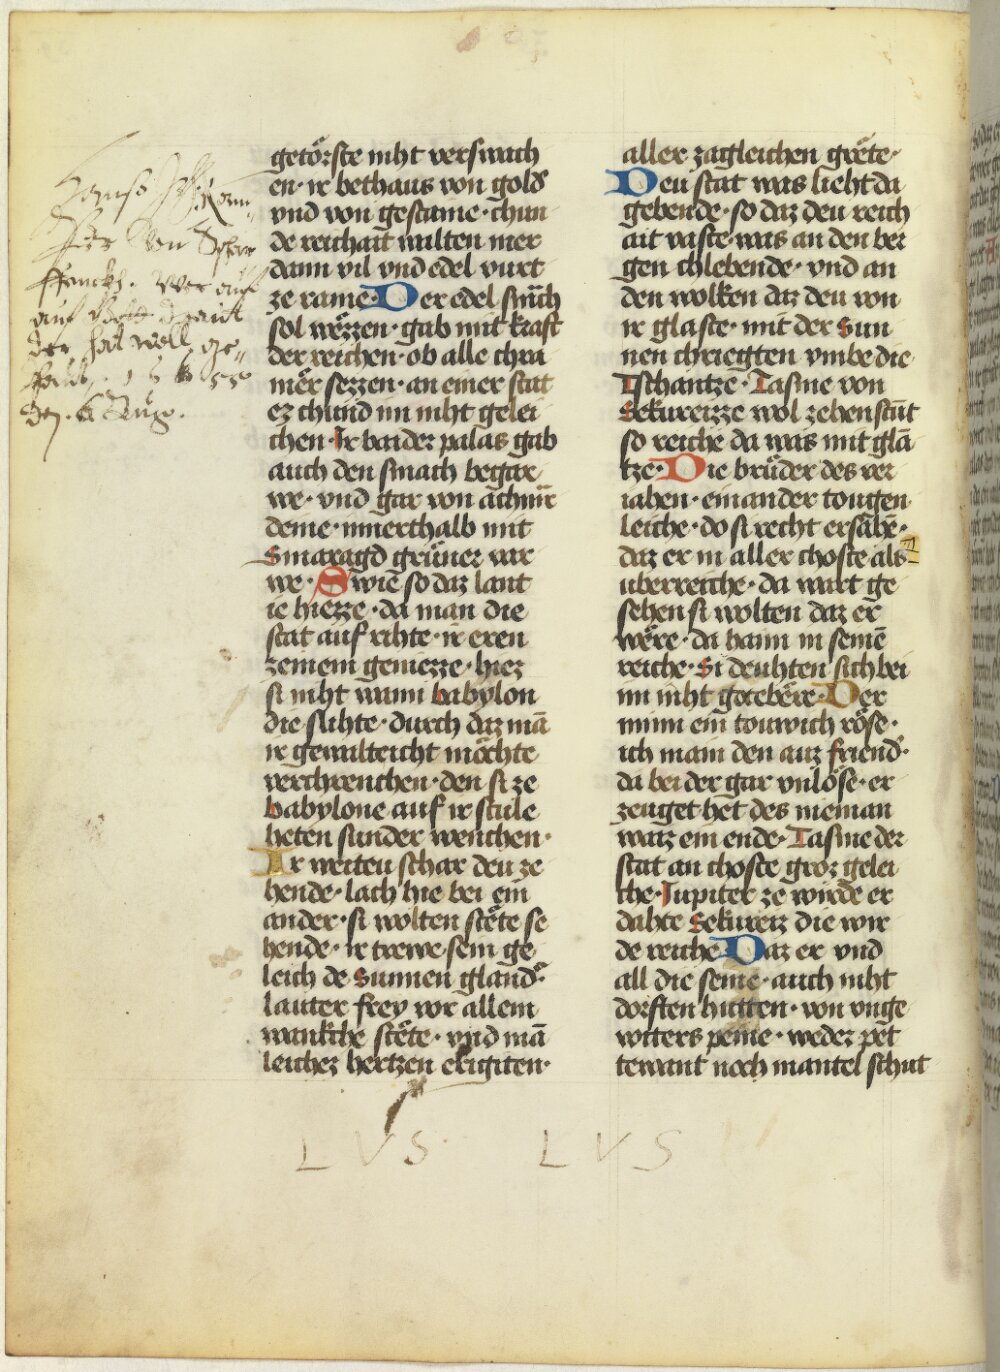 getoͤrste niht verswach
en · ir bethaus von gold
vnd von gestaine · chun
de reichait walten mer
dann vil vnd edel vurt
ze rame · Der edel smͣch
sol weͤzzen · gab mit kraft
der reichen · ob alle chra
meͤr sezzen · an einer stat
ez chund im niht gelei
chen · Ir baider palas gab
auch den smach begar
we · vnd gar von achmͣr
deme · innerthalb mit
Smaragd gruͤner var
we · Swie so daz lant
ie hiezze · da man die
stat auf rihte · ir eren
zeinem geniezze · hiez
si niht wann babylon
die slihte · durch daz mā
ir gewalticht moͤchte
verchrenchen · den si ze
babylone auf ir stule
heten sunder wenchen ·
Ir weiteu schar deu ze
hende · lach hie bei ein
ander · si wolten steͤte se
hende · ir trewe sein ge
leich de Sunnen gland ·
lauter frey vor allem
wankche steͤte · vnd mā
leichez hertzen erkgiten ·
aller zagleichen greͤte ·
Deu stat was lieht da
gebende · so daz deu reich
ait vaste was an den ber
gen chlebende · vnd an
den wolken daz deu von
ir glaste · mit der Sun
nen chriegten vmbe die
Tschantze · Tasme von
Sekureizze wol zehen stūt
so reiche da was mit glā
tze · Die bruͤder des ver
iahen · einander tougen
leiche · do si recht ersahē ·
daz er in aller choste als
uberreiche · da wart ge
sehen si wolten daz er
weͤre · da haim in seinē
reiche · Si deuhten sich bei
im niht gecebeͤre · Der
minn ein touwich roͤse ·
ich main den auz friend ·
da bei der gar vnloͤse · er
zeuget het des nieman
waiz ein ende · Tasme der
stat an choste groz gelei
che · Jupiter ze wirde er
dahte Sekureiz die wir
de reiche · Daz er vnd
all die seine · auch niht
dorften hutten · von vnge
witters peine · wedez pet
tewant noch mantel schut
LVS LVS